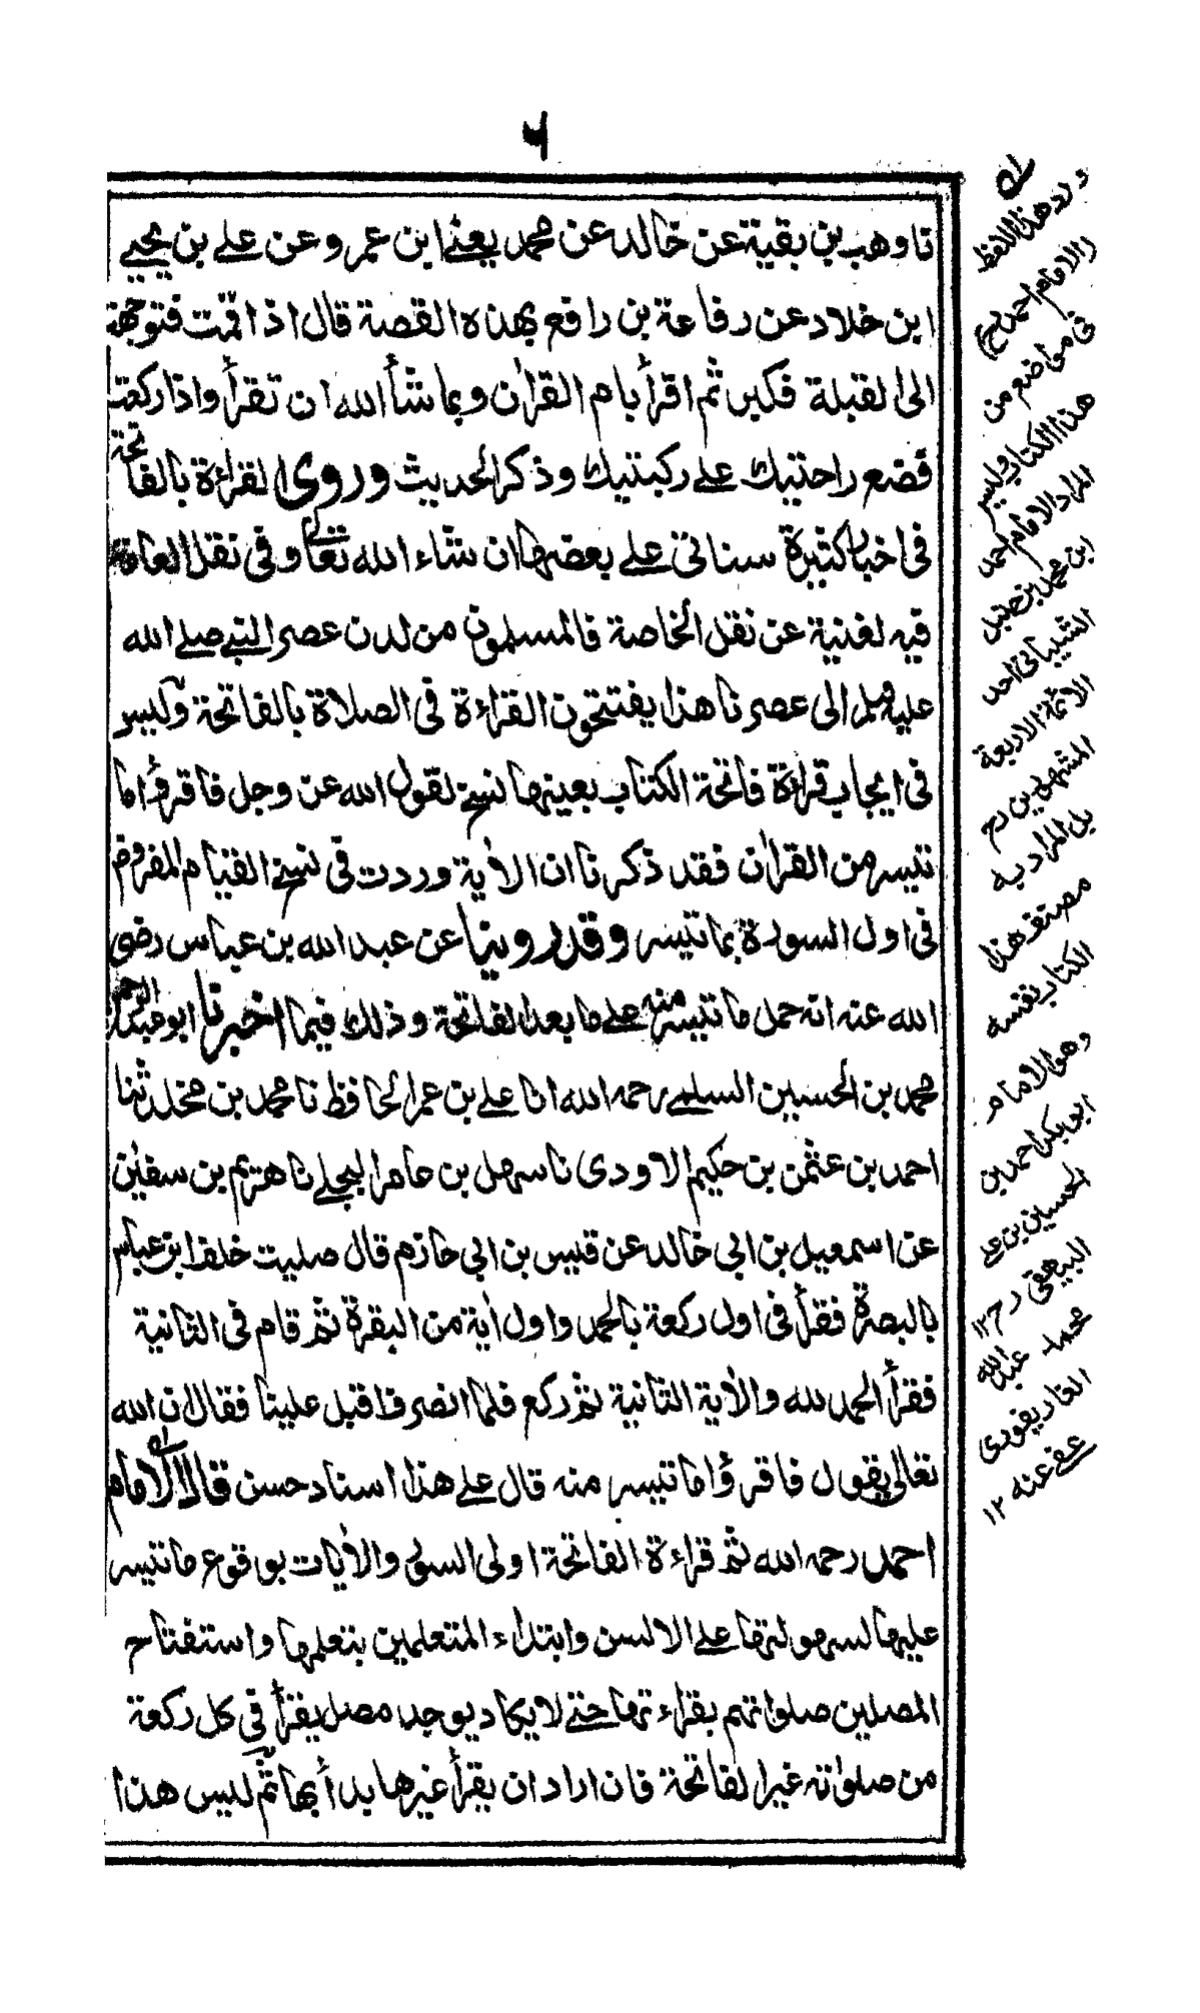 ٦
نا وهب بن بقية عن خالد عن محمد يعني ابن عمرو عن علي بن يحيى
ابن خلاد عن رفاعة بن رافع بهذه القصة قال اذا قمت فتوجهت
الى القبلة فكبر ثم اقرأ بام القرأن وبما شأ الله ان تقرأ واذا ركعت
فضع راحتيك علي ركبتيك وذكر الحديث وروى القراءة بالفاتحة
في اخبار كثيرة سناتي علي بعضها ان شاء الله تعالى وفي نقل العامة
فيه لغنية عن نقل الخاصة فالمسلمون من لدن عصر النبي صلي الله
عليه وسلم الى عصرنا هذا يفتتحون القراءة في الصلاة بالفاتحة وليس
في ايجاب قراءة فاتحة الكتاب بعينها نسخ لقول الله عز وجل فاقرؤا ما
تيسر من القرأن فقد ذكرنا ان الأية وردت في نسخ القيام المفروض
في اول السورة بما تيسر وقد روينا عن عبد الله بن عباس رضي
الله عنه انه حمل ما تيسر منه علي ما بعد الفاتحة وذلك فيما اخبرنا ابو عبد الرحمن
محمد بن الحسين السلمي رحمه الله انا علي بن عمر الحافظ نا محمد بن مخلد ثنا
احمد بن عثمن بن حكيم الاودى نا سهل بن عامر البجلي نا هريم بن سفين
عن اسمعيل بن ابي خالد عن قيس بن ابي حازم قال صليت خلف ابن عباس
بالبصرة فقرأ في اول ركعة بالحمد واول أية من البقرة ثم قام في الثانية
فقرأ الحمد لله والأية الثانية ثم ركع فلما انصرف اقبل علينا فقال ان الله
تعالى يقول فاقرؤا ما تيسر منه قال علي هذا اسناد حسن قال الامام
احمد رحمه الله ثم قراءة الفاتحة اولى السور والأيات بوقوع ما تيسر
عليها لسهولتها علي الالسن وابتداء المتعلمين بتعلمها واستفتاح
المصلين صلواتهم بقراءتها حتي لا يكاد يوجد مصل يقرأ في كل ركعة
من صلواته غير الفاتحة فان اراد ان يقرأ غيرها بدأ بها ثم ليس هذا
ورد هذا اللفظ
والامام احمد رح
في مواضع من
هذا الكتاب وليس
المراد الامام احمد
ابن محمد بن حنبل
الشيباني احد
الائمة الاربعة
المشهورين رح
بل المراد به
مصنف هذا
الكتاب نفسه
وهو الامام
ابي بكر احمد بن
الحسين بن علي
البيهقي رح ١٢
محمد عبد الله
الغازيفورى
عفي عنه ١٢